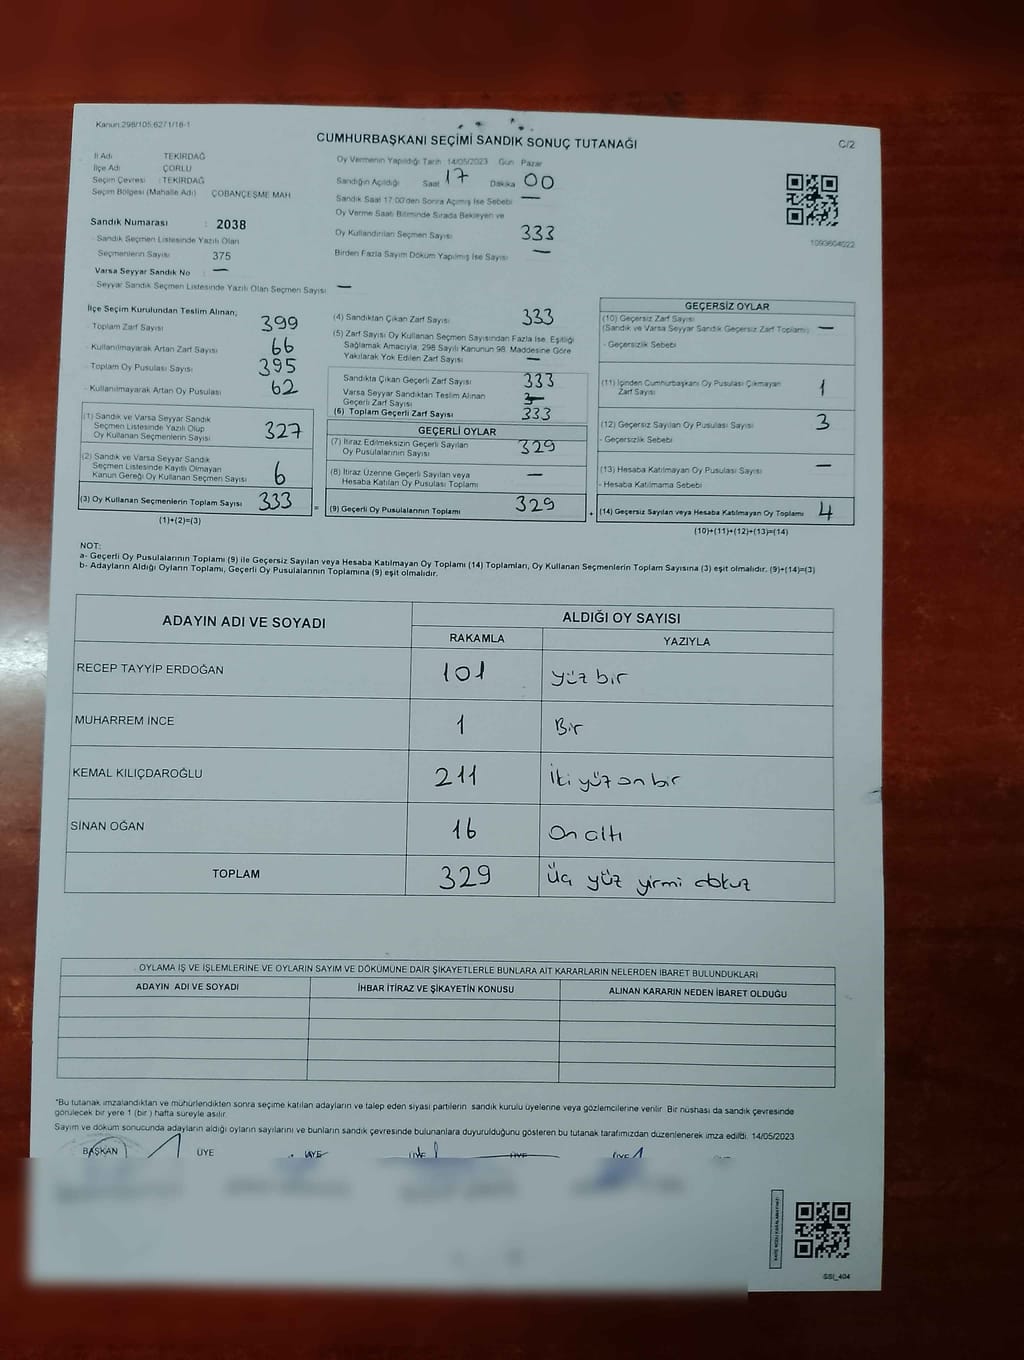 Kanun:298/105,6271/18-1
CUMHURBAŞKANI SEÇİMİ SANDIK SONUÇ TUTANAĞI
C/2
İl Adı TEKİRDAĞ
İlçe Adı ÇORLU
Seçim Çevresi : TEKİRDAĞ
Seçim Bölgesi (Mahalle Adı) ÇOBANÇEŞME MAH
Sandık Numarası : 2038
Sandık Seçmen Listesinde Yazılı Olan
Seçmenlerin Sayısı 375
Varsa Seyyar Sandık No : —
Seyyar Sandık Seçmen Listesinde Yazılı Olan Seçmen Sayısı —
Oy Vermenin Yapıldığı Tarih 14/05/2023 Gün Pazar
Sandığın Açıldığı Saat 17 Dakika 00
Sandık Saat 17.00'den Sonra Açılmış İse Sebebi —
Oy Verme Saati Bitiminde Sırada Bekleyen ve
Oy Kullandırılan Seçmen Sayısı 333
Birden Fazla Sayım Döküm Yapılmış İse Sayısı —
1093604022
İlçe Seçim Kurulundan Teslim Alınan;
- Toplam Zarf Sayısı 399
- Kullanılmayarak Artan Zarf Sayısı 66
- Toplam Oy Pusulası Sayısı 395
- Kullanılmayarak Artan Oy Pusulası 62
(1) Sandık ve Varsa Seyyar Sandık
Seçmen Listesinde Yazılı Olup
Oy Kullanan Seçmenlerin Sayısı 327
(2) Sandık ve Varsa Seyyar Sandık
Seçmen Listesinde Kayıtlı Olmayan
Kanun Gereği Oy Kullanan Seçmen Sayısı 6
(3) Oy Kullanan Seçmenlerin Toplam Sayısı 333
(1)+(2)=(3)
=
(4) Sandıktan Çıkan Zarf Sayısı 333
(5) Zarf Sayısı Oy Kullanan Seçmen Sayısından Fazla İse, Eşitliği
Sağlamak Amacıyla; 298 Sayılı Kanunun 98. Maddesine Göre
Yakılarak Yok Edilen Zarf Sayısı —
Sandıkta Çıkan Geçerli Zarf Sayısı 333
Varsa Seyyar Sandıktan Teslim Alınan
Geçerli Zarf Sayısı
(6) Toplam Geçerli Zarf Sayısı 333
GEÇERLİ OYLAR
(7) İtiraz Edilmeksizin Geçerli Sayılan
Oy Pusulalarının Sayısı 329
(8) İtiraz Üzerine Geçerli Sayılan veya
Hesaba Katılan Oy Pusulası Toplamı —
(9) Geçerli Oy Pusulalarının Toplamı 329
+
GEÇERSİZ OYLAR
(10) Geçersiz Zarf Sayısı
(Sandık ve Varsa Seyyar Sandık Geçersiz Zarf Toplamı) —
- Geçersizlik Sebebi
(11) İçinden Cumhurbaşkanı Oy Pusulası Çıkmayan
Zarf Sayısı 1
(12) Geçersiz Sayılan Oy Pusulası Sayısı 3
- Geçersizlik Sebebi
(13) Hesaba Katılmayan Oy Pusulası Sayısı —
- Hesaba Katılmama Sebebi
(14) Geçersiz Sayılan veya Hesaba Katılmayan Oy Toplamı 4
(10)+(11)+(12)+(13)=(14)
NOT:
a- Geçerli Oy Pusulalarının Toplamı (9) ile Geçersiz Sayılan veya Hesaba Katılmayan Oy Toplamı (14) Toplamları, Oy Kullanan Seçmenlerin Toplam Sayısına (3) eşit olmalıdır. (9)+(14)=(3)
b- Adayların Aldığı Oyların Toplamı, Geçerli Oy Pusulalarının Toplamına (9) eşit olmalıdır.
ADAYIN ADI VE SOYADI
ALDIĞI OY SAYISI
RAKAMLA YAZIYLA
RECEP TAYYİP ERDOĞAN 101 yüz bir
MUHARREM İNCE 1 Bir
KEMAL KILIÇDAROĞLU 211 İki yüz on bir
SİNAN OĞAN 16 On altı
TOPLAM 329 Üç yüz yirmi dokuz
OYLAMA İŞ VE İŞLEMLERİNE VE OYLARIN SAYIM VE DÖKÜMÜNE DAİR ŞİKAYETLERLE BUNLARA AİT KARARLARIN NELERDEN İBARET BULUNDUKLARI
ADAYIN ADI VE SOYADI İHBAR İTİRAZ VE ŞİKAYETİN KONUSU ALINAN KARARIN NEDEN İBARET OLDUĞU
*Bu tutanak imzalandıktan ve mühürlendikten sonra seçime katılan adayların ve talep eden siyasi partilerin sandık kurulu üyelerine veya gözlemcilerine verilir. Bir nüshası da sandık çevresinde
görülecek bir yere 1 (bir) hafta süreyle asılır.
Sayım ve döküm sonucunda adayların aldığı oyların sayılarını ve bunların sandık çevresinde bulunanlara duyurulduğunu gösteren bu tutanak tarafımızdan düzenlenerek imza edildi. 14/05/2023
BAŞKAN ÜYE ÜYE ÜYE ÜYE ÜYE
SSI_404